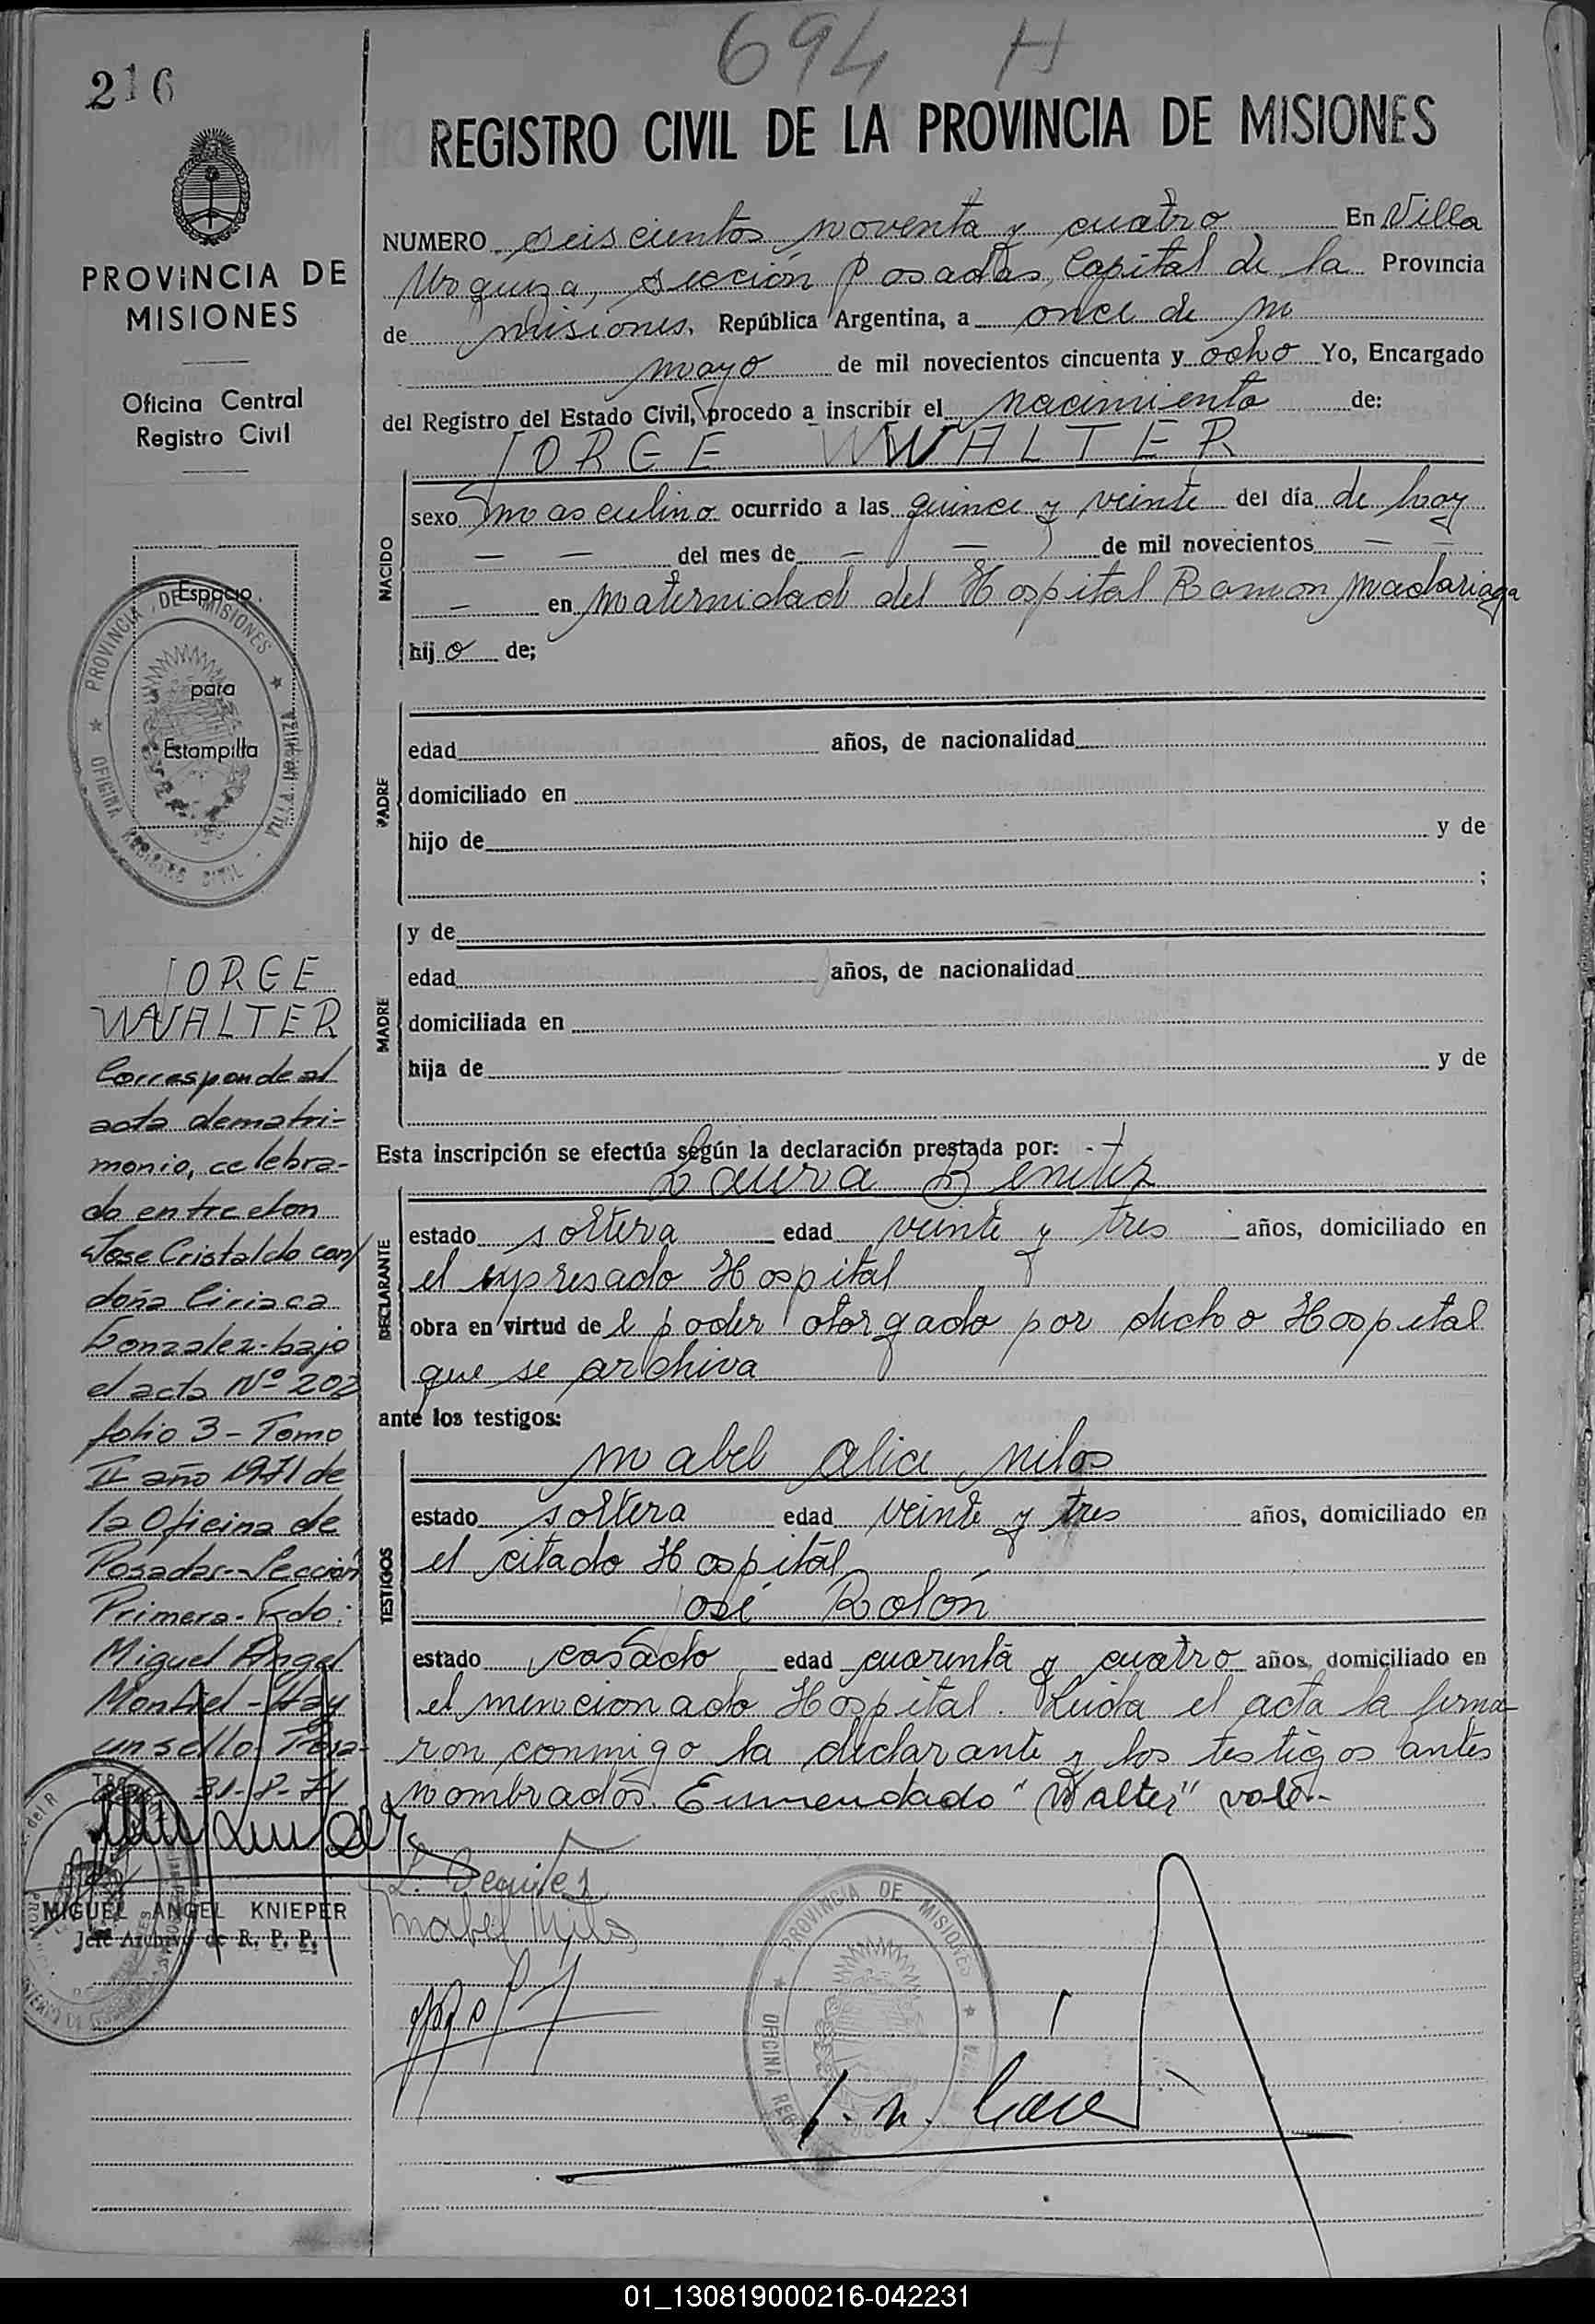 694 H
216
REGISTRO CIVIL DE LA PROVINCIA DE MISIONES
PROVINCIA DE
MISIONES
Oficina Central
Registro Civil
NUMERO seiscientos noventa y cuatro En Villa
Urquiza, sección Posadas, Capital de la Provincia
de misiones, República Argentina, a once de m
mayo de mil novecientos cincuenta y ocho Yo, Encargado
del Registro del Estado Civil, procedo a inscribir el nacimiento de:
JORGE WALTER
NACIDO
sexo masculino ocurrido a las quince y veinte del día de hoy
— — del mes de — — de mil novecientos — —
— en Maternidad del Hospital Ramon Madariaga
hijo de;
Espacio
para
Estampilla
PROVINCIA DE MISIONES
OFICINA REGISTRO CIVIL
PADRE
edad años, de nacionalidad
domiciliado en
hijo de y de
;
MADRE
y de
edad años, de nacionalidad
domiciliada en
hija de y de
Esta inscripción se efectúa según la declaración prestada por:
Laura Benitez
DECLARANTE
estado soltera edad veinte y tres años, domiciliado en
el expresado Hospital
obra en virtud del poder otorgado por dicho Hospital
que se archiva
ante los testigos:
TESTIGOS
mabel alia milos
estado soltera edad veinte y tres años, domiciliado en
el citado Hospital
José Rolón
estado casado edad cuarenta y cuatro años, domiciliado en
el mencionado Hospital. Leida el acta la firma-
ron conmigo la declarante y los testigos antes
nombrados. Enmendado "Walter" vale.-
JORGE
WALTER
Corresponde al
acta de matri-
monio, celebra-
do entre don
Jose Cristaldo con
doña Ciriaca
Gonzalez- bajo
el acta Nº 202
folio 3 - Tomo
II año 1971 de
la Oficina de
Posadas- Sección
Primera- Fdo:
Miguel Angel
Montiel - Hay
un sello Posa-
das 31-8-71
MIGUEL ANGEL KNIEPER
Jefe Archivo de R. P. P.
L. Benitez
Mabel Milos
PROVINCIA DE MISIONES
OFICINA REG
01_130819000216-042231